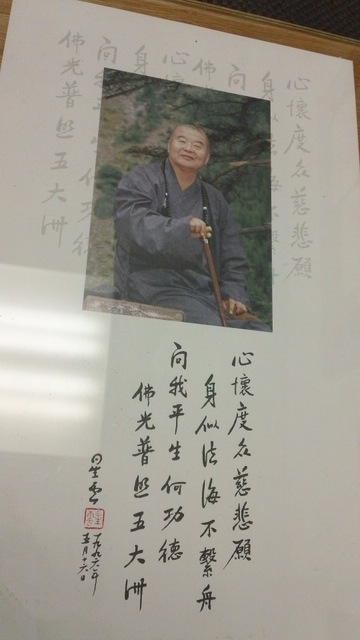 心懷度眾慈悲願
身似法海不繫舟
問我平生何功德
佛光普照五大洲
星雲
一九九六年
五月十六日
心懷度眾慈悲願
問我平生何功德
佛光普照五大洲